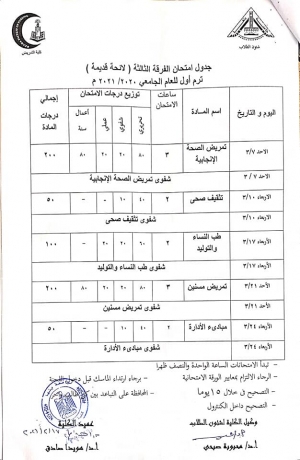 شئون الطلاب
كلية التمريض
جدول امتحان الفرقة الثالثة ( لائحة قديمة )
ترم أول للعام الجامعي ٢٠٢٠/ ٢٠٢١ م
اليوم و التاريخ اسم المادة ساعات الامتحان توزيع درجات الامتحان إجمالي درجات المادة
تحريري شفوي عملي أعمال سنة
الاحد ٣/٧ تمريض الصحة الإنجابية ٣ ٨٠ ٢٠ ٢٠ ٨٠ ٢٠٠
الاحد ٣/٧ شفوى تمريض الصحة الإنجابية
الأربعاء ٣/١٠ تثقيف صحى ٢ ٤٠ ١٠ - - ٥٠
الأربعاء ٣/١٠ شفوى تثقيف صحى
الأربعاء ٣/١٧ طب النساء والتوليد ٢ ٦٠ ٢٠ ٢٠ - ١٠٠
الأربعاء ٣/١٧ شفوى طب النساء والتوليد
الاحد ٣/٢١ تمريض مسنين ٣ ٨٠ ٢٠ ٢٠ ٨٠ ٢٠٠
الاحد ٣/٢١ شفوى تمريض مسنين
الأربعاء ٣/٢٤ مبادىء الأدارة ٢ ٤٠ ١٠ - - ٥٠
الأربعاء ٣/٢٤ شفوى مبادىء الأدارة
- تبدأ الامتحانات الساعة الواحدة والنصف ظهرا
- الرجاء الالتزام بمعايير الورقة الامتحانية - برجاء ارتداء الماسك قبل دخول اللجنة
- التصحيح في خلال ١٥ يوما - المحافظة على التباعد بين
- التصحيح داخل الكنترول
وكيل الكلية لشئون الطلاب عميد الكلية
أ.د/ صبحي أ.د/ هويدا صادق